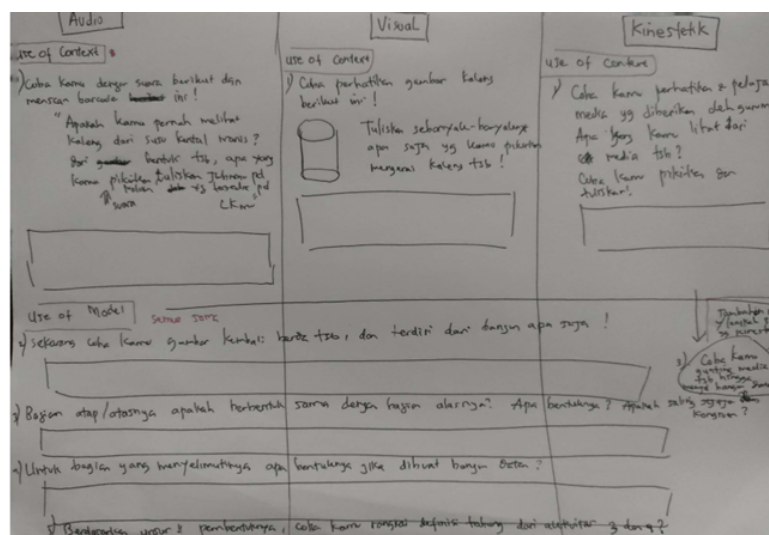 Audio
Use of Context
1) Coba kamu dengar suara berikut dan
menscan barcode ini !
"Apakah kamu pernah melihat
kaleng dari susu kental manis ?
dari bentuk tsb, apa yang
kamu pikirkan, tuliskan jawaban pd
yg tersedia pd
suara
LKM"
Visual
Use of Context
1) Coba perhatikan gambar kaleng
berikut ini !
Tuliskan sebanyak-banyaknya
apa saja yg kamu pikirkan
mengenai kaleng tsb !
Kinestetik
Use of Context
1) Coba kamu perhatikan & pelajari
media yg diberikan oleh gurumu
Apa yang kamu lihat dari
media tsb ?
Coba kamu pikirkan dan
tuliskan!
Use of Model
semua sama
2) Sekarang coba kamu gambar kembali benda tsb, dan terdiri dari bangun apa saja !
3) Coba kamu
gunting media
tsb hingga
3) Bagian atap/atasnya apakah berbentuk sama dengan bagian alasnya? Apa bentuknya? Apakah saling sejajar dan
kongruen ?
4) Untuk bagian yang menyelimutinya apa bentuknya jika dibuat bangun datar ?
Berdasarkan unsur2 pembentuknya, coba kamu rangkai definisi tabung dari aktivitas 3 dan 4 ?